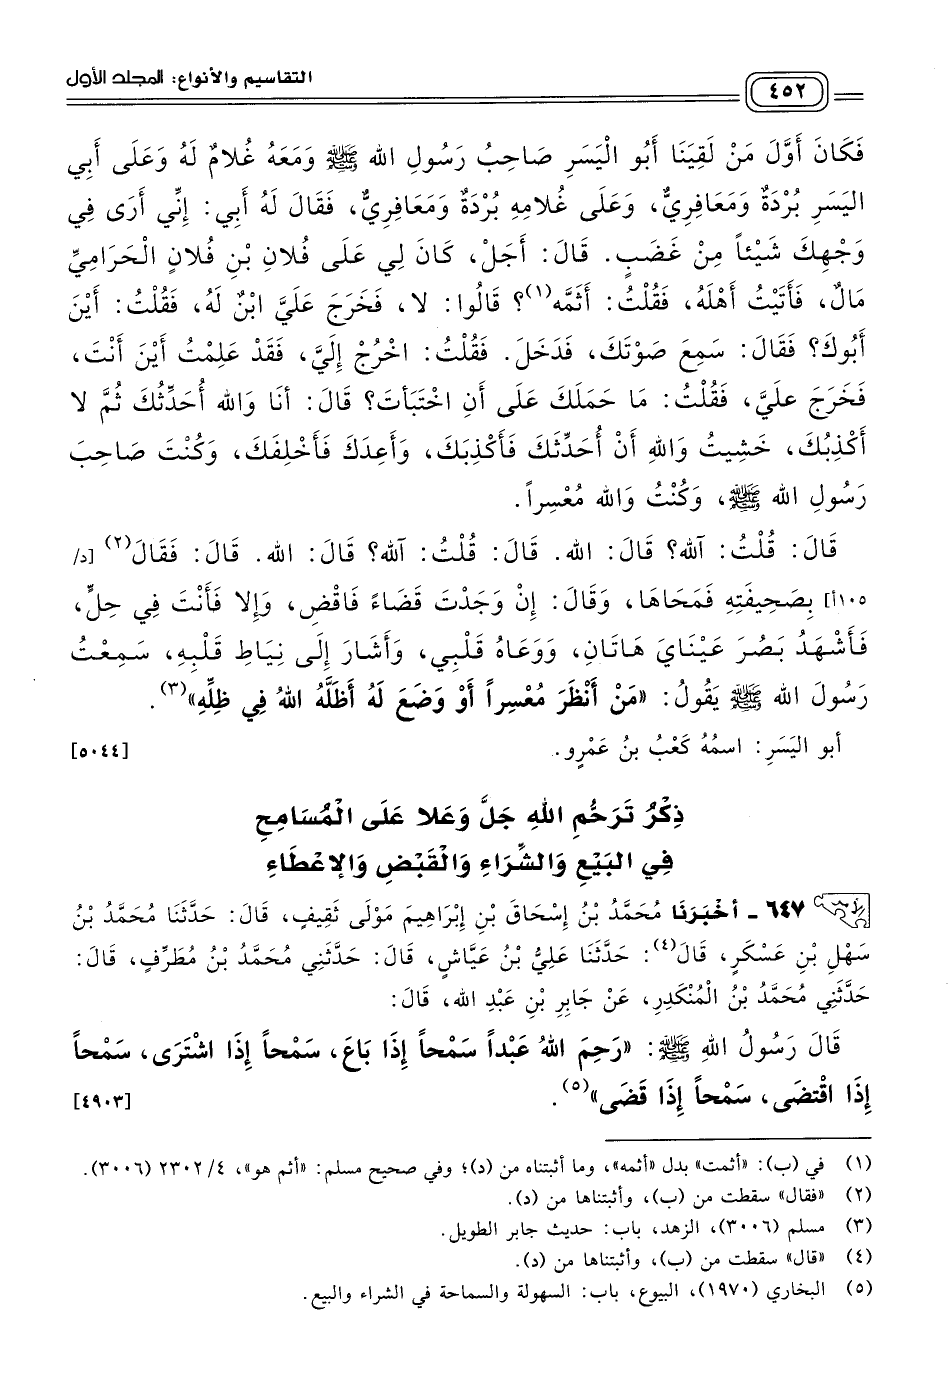 ٤٥٢
التقاسيم والأنواع: المجلد الأول
فَكَانَ أَوَّلَ مَنْ لَقِيَنَا أَبُو الْيَسَرِ صَاحِبُ رَسُولِ الله ﷺ وَمَعَهُ غُلامٌ لَهُ وَعَلَى أَبِي
اليَسَرِ بُرْدَةٌ وَمَعَافِرِيٌّ، وَعَلَى غُلامِهِ بُرْدَةٌ وَمَعَافِرِيٌّ، فَقَالَ لَهُ أَبِي: إِنِّي أَرَى فِي
وَجْهِكَ شَيْئاً مِنْ غَضَبٍ. قَالَ: أَجَلْ، كَانَ لِي عَلَى فُلانِ بْنِ فُلانٍ الْحَرَامِيِّ
مَالٌ، فَأَتَيْتُ أَهْلَهُ، فَقُلْتُ: أَثَمَّه(١)؟ قَالُوا: لا، فَخَرَجَ عَلَيَّ ابْنٌ لَهُ، فَقُلْتُ: أَيْنَ
أَبُوكَ؟ فَقَالَ: سَمِعَ صَوْتَكَ، فَدَخَلَ. فَقُلْتُ: اخْرُجْ إِلَيَّ، فَقَدْ عَلِمْتُ أَيْنَ أَنْتَ،
فَخَرَجَ علَيَّ، فَقُلْتُ: مَا حَمَلَكَ عَلَى أَنِ اخْتَبَأتَ؟ قَالَ: أَنَا وَالله أُحَدِّثُكَ ثُمَّ لا
أَكْذِبُكَ، خَشِيتُ وَاللهِ أَنْ أُحَدِّثَكَ فَأَكْذِبَكَ، وَأَعِدَكَ فَأَخْلِفَكَ، وَكُنْتَ صَاحِبَ
رَسُولِ الله ﷺ، وَكُنْتُ وَالله مُعْسِراً.
قَالَ: قُلْتُ: آللهِ؟ قَالَ: الله. قَالَ: قُلْتُ: آللهِ؟ قَالَ: الله. قَالَ: فَقَالَ(٢) [د/
١٠٥أ] بِصَحِيفَتِهِ فَمَحَاهَا، وَقَالَ: إِنْ وَجَدْتَ قَضَاءً فَاقْضِ، وَإِلا فَأَنْتَ فِي حِلٍّ،
فَأَشْهَدُ بَصُرَ عَيْنَايَ هَاتَانِ، وَوَعَاهُ قَلْبِي، وَأَشَارَ إِلَى نِيَاطِ قَلْبِهِ، سَمِعْتُ
رَسُولَ الله ﷺ يَقُولُ: «مَنْ أَنْظَرَ مُعْسِراً أَوْ وَضَعَ لَهُ أَظَلَّهُ اللهُ فِي ظِلِّهِ»(٣).
أبو اليَسَرِ: اسمُهُ كَعْبُ بنُ عَمْرٍو. [٥٠٤٤]
ذِكْرُ تَرَحُّمِ اللهِ جَلَّ وَعَلا عَلَى الْمُسَامِحِ
فِي البَيْعِ وَالشِّرَاءِ وَالْقَبْضِ وَالإعْطَاءِ
٦٤٧ - أخْبَرَنَا مُحَمَّدُ بْنُ إِسْحَاقَ بْنِ إِبْرَاهِيمَ مَوْلَى ثَقِيفٍ، قَالَ: حَدَّثَنَا مُحَمَّدُ بْنُ
سَهْلِ بْنِ عَسْكَرٍ، قَالَ(٤): حَدَّثَنَا عَلِيُّ بْنُ عَيَّاشٍ، قَالَ: حَدَّثَنِي مُحَمَّدُ بْنُ مُطَرِّفٍ، قَالَ:
حَدَّثَنِي مُحَمَّدُ بْنُ الْمُنْكَدِرِ، عَنْ جَابِرِ بْنِ عَبْدِ الله، قَالَ:
قَالَ رَسُولُ اللهِ ﷺ: «رَحِمَ اللهُ عَبْداً سَمْحاً إِذَا بَاعَ، سَمْحاً إِذَا اشْتَرَى، سَمْحاً
إِذَا اقْتضَى، سَمْحاً إِذَا قَضَى»(٥). [٤٩٠٣]
(١) في (ب): «أثمت» بدل «أثمه»، وما أثبتناه من (د)؛ وفي صحيح مسلم: «أثم هو»، ٤/ ٢٣٠٢ (٣٠٠٦).
(٢) «فقال» سقطت من (ب)، وأثبتناها من (د).
(٣) مسلم (٣٠٠٦)، الزهد، باب: حديث جابر الطويل.
(٤) «قال» سقطت من (ب)، وأثبتناها من (د).
(٥) البخاري (١٩٧٠)، البيوع، باب: السهولة والسماحة في الشراء والبيع.